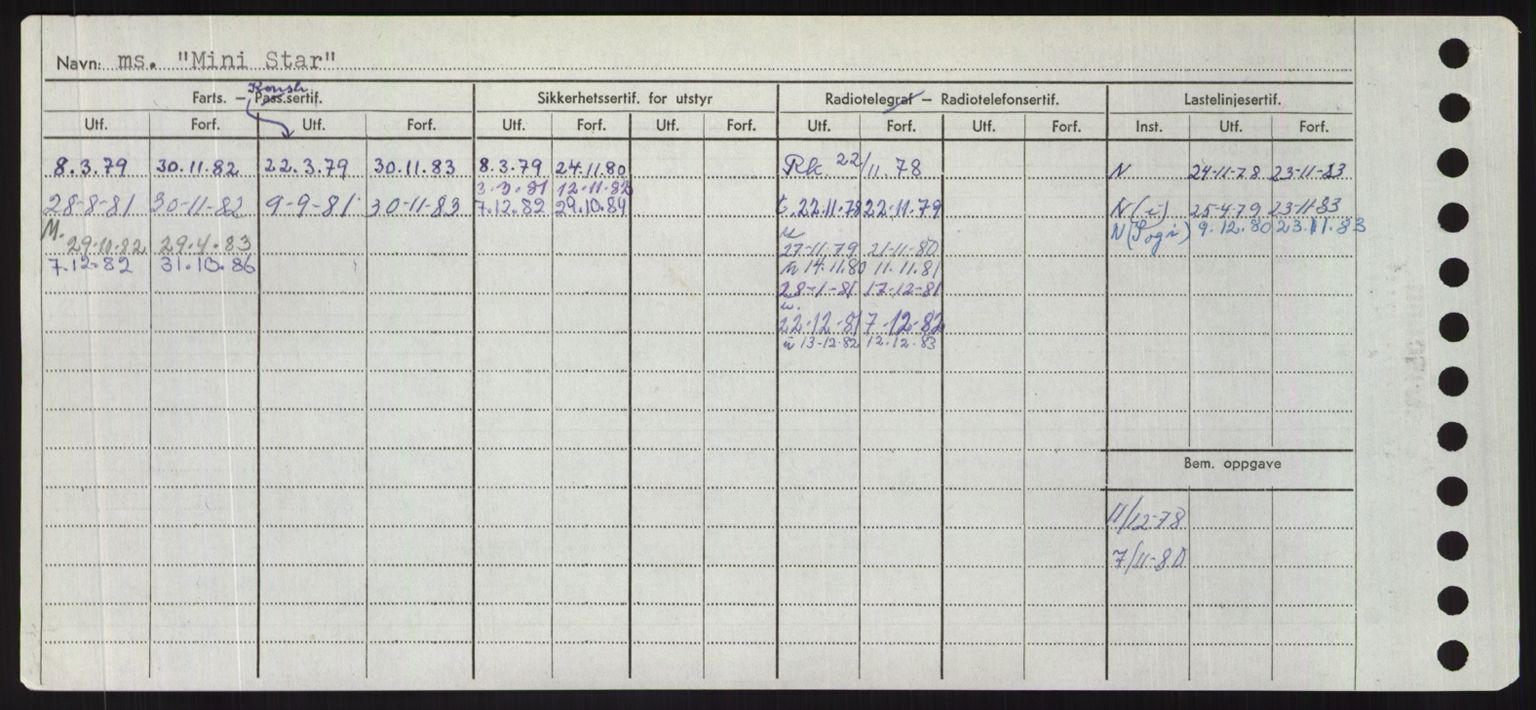 Navn: ms. "Mini Star"
Farts. – Pass.sertif. Sikkerhetssertif. for utstyr Radiotelegraf – Radiotelefonsertif. Lastelinjesertif.
Konstr.
Utf. Forf. Utf. Forf. Utf. Forf. Utf. Forf. Utf. Forf. Utf. Forf. Inst. Utf. Forf.
8.3.79 30.11.82 22.3.79 30.11.83 8.3.79 24.11.80 Rk. 22/11.78 N 24-11-78 23-11-83
3.9.81 12.11.82
28-8-81 30-11-82 9-9-81 30-11-83 7.12.82 29.10.84 t. 22.11.78 22.11.79 N(i) 25-4-79 23-11-83
M. u N(Sogi) 9.12.80 23.11.83
29.10.82 29.4.83 27-11-79 21-11-80
7.12.82 31.10.86 tu 14.11.80 11.11.81
28-1-81 17-12-81
u.
22-12-81 7-12-82
u 13-12-82 12.12.83
Bem. oppgave
11/12-78
7/11-80